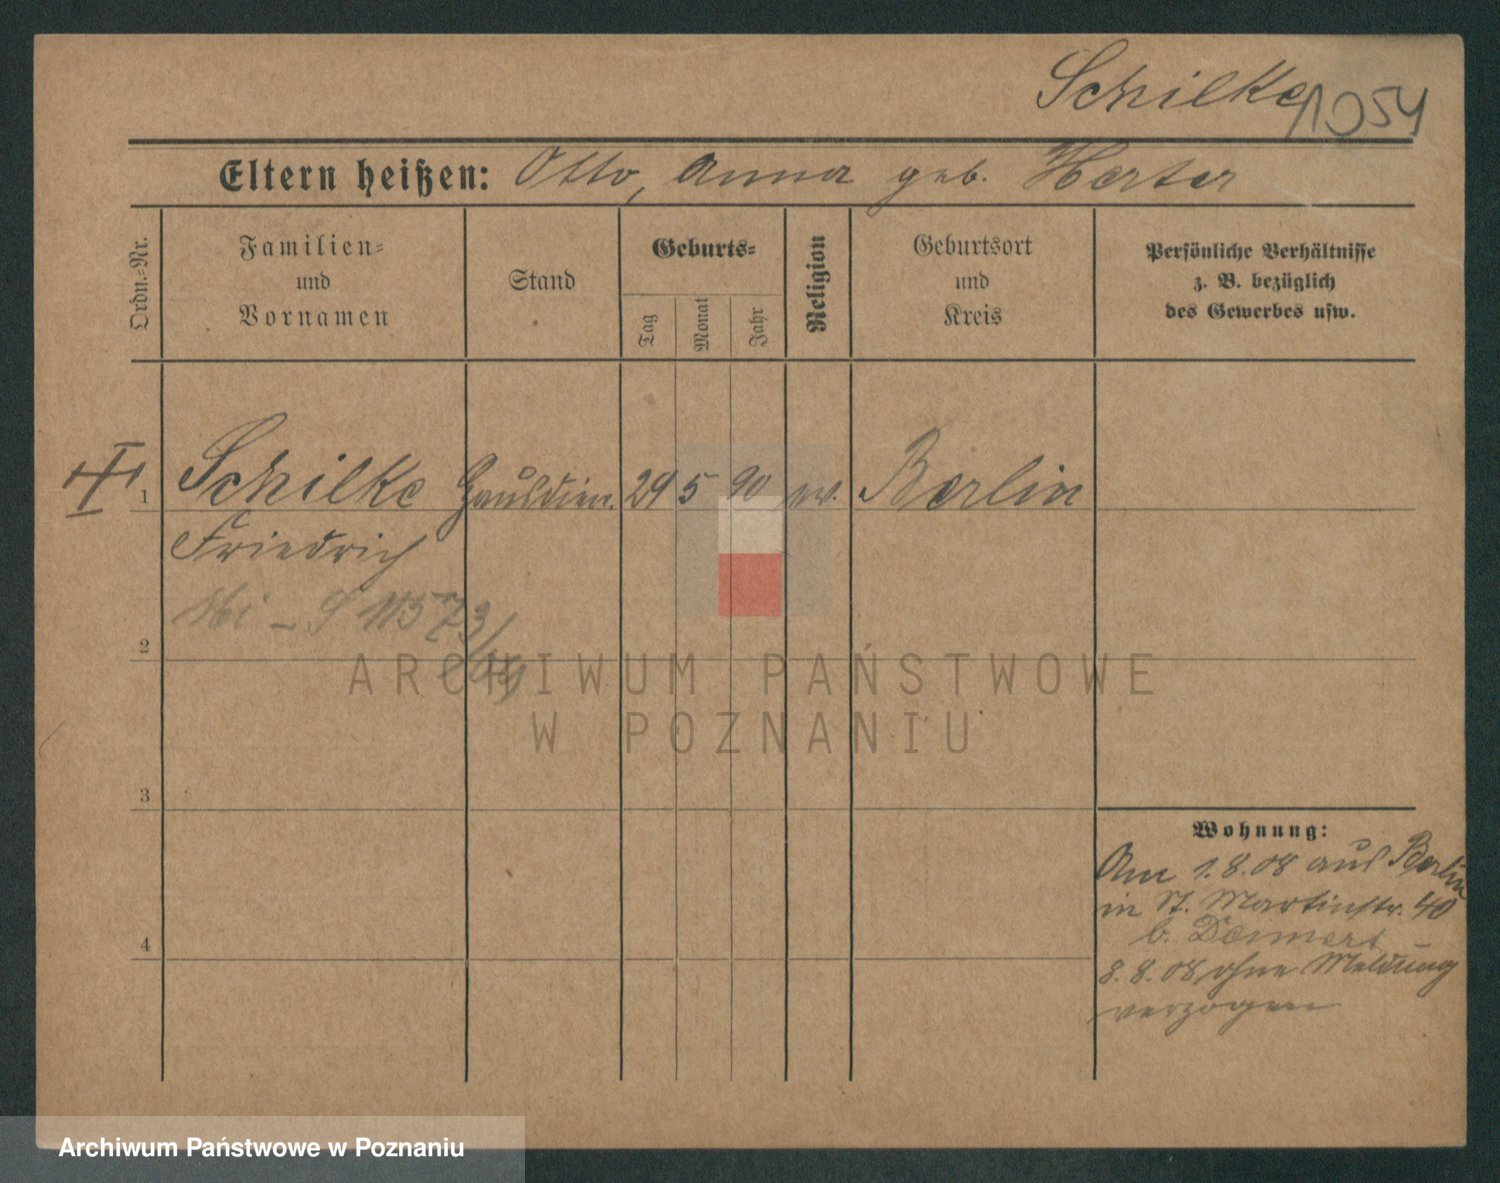 Schilke 1054
Eltern heißen: Otto, Anna geb. Herter
Ordn.-Nr.
Familien-
und
Vornamen
Stand
Geburts-
Tag
Monat
Jahr
Religion
Geburtsort
und
Kreis
Persönliche Verhältnisse
z. B. bezüglich
des Gewerbes usw.
1 Schilke Hausdien. 29 5 90 ev. Berlin
Friedrich
2
3
4
Wohnung:
Am 1.8.08 aus Berlin
in St. Martinstr. 40
b. Deimert
8.8.08 ohne Meldung
verzogen
ARCHIWUM PAŃSTWOWE
W POZNANIU
Archiwum Państwowe w Poznaniu